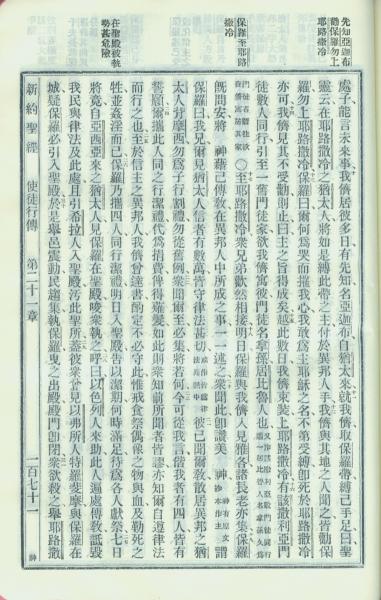 先知亞迦布
勸保羅勿上
耶路撒冷
保羅至耶路
撒冷
在聖殿被執
勢甚危險
處子能言未來事我儕居彼多日有先知名亞迦布自猶太來就我儕取保羅帶縛己手足曰聖
靈云在耶路撒冷之猶太人將如是縛此帶之主付於異邦人手我儕與其地之人聞之皆勸保
羅勿上耶路撒冷保羅曰爾何爲哭而摧我心我敢爲主耶穌之名不第受縛卽死於耶路撒冷
亦可我儕見其不受勸則止曰主之旨得成矣越此數日我儕束裝上耶路撒冷有該撒利亞門
徒數人同行引至一舊門徒家欲我儕寓彼門徒名拿孫居比魯人也
○至耶路撒冷衆兄弟歡然相接明日保羅與我儕入見雅各諸長老亦集保羅
旣問安將 神藉己傳敎在異邦人中所成之事一一述之衆聞此卽讚美 神 謂
保羅曰我兄爾見猶太人信者有數萬皆守律法甚切 彼已聞爾敎散居異邦之猶
太人背摩西勿爲子行割禮勿從舊例衆聞爾至必集將若何今可從我言偕我者有四人皆有
誓願爾攜此人同之行潔禮代爲捐費俾得薙髮如此則衆知前所聞者皆謬亦知爾自遵律法
而行之也至於信主之異邦人我儕曾達書酌定不必守此惟戒食祭偶像之物與血及勒死之
牲並姦淫而已保羅乃攜四人同行潔禮明日入聖殿告以潔期何時滿足待爲各人獻祭七日
將竟自亞西亞來之猶太人見保羅在聖殿唆衆執之呼曰以色列人來助此人遍處傳敎詆毀
我民與律法及此處且引希拉人入聖殿污此聖所蓋彼衆曾見以弗所人特羅斐摩與保羅在
城疑保羅必引入聖殿於是舉邑震動民趨集執保羅曳之出殿殿門卽閉衆欲殺之舉耶路撒
新約聖經 使徒行傳 第二十一章 一百七十一 神